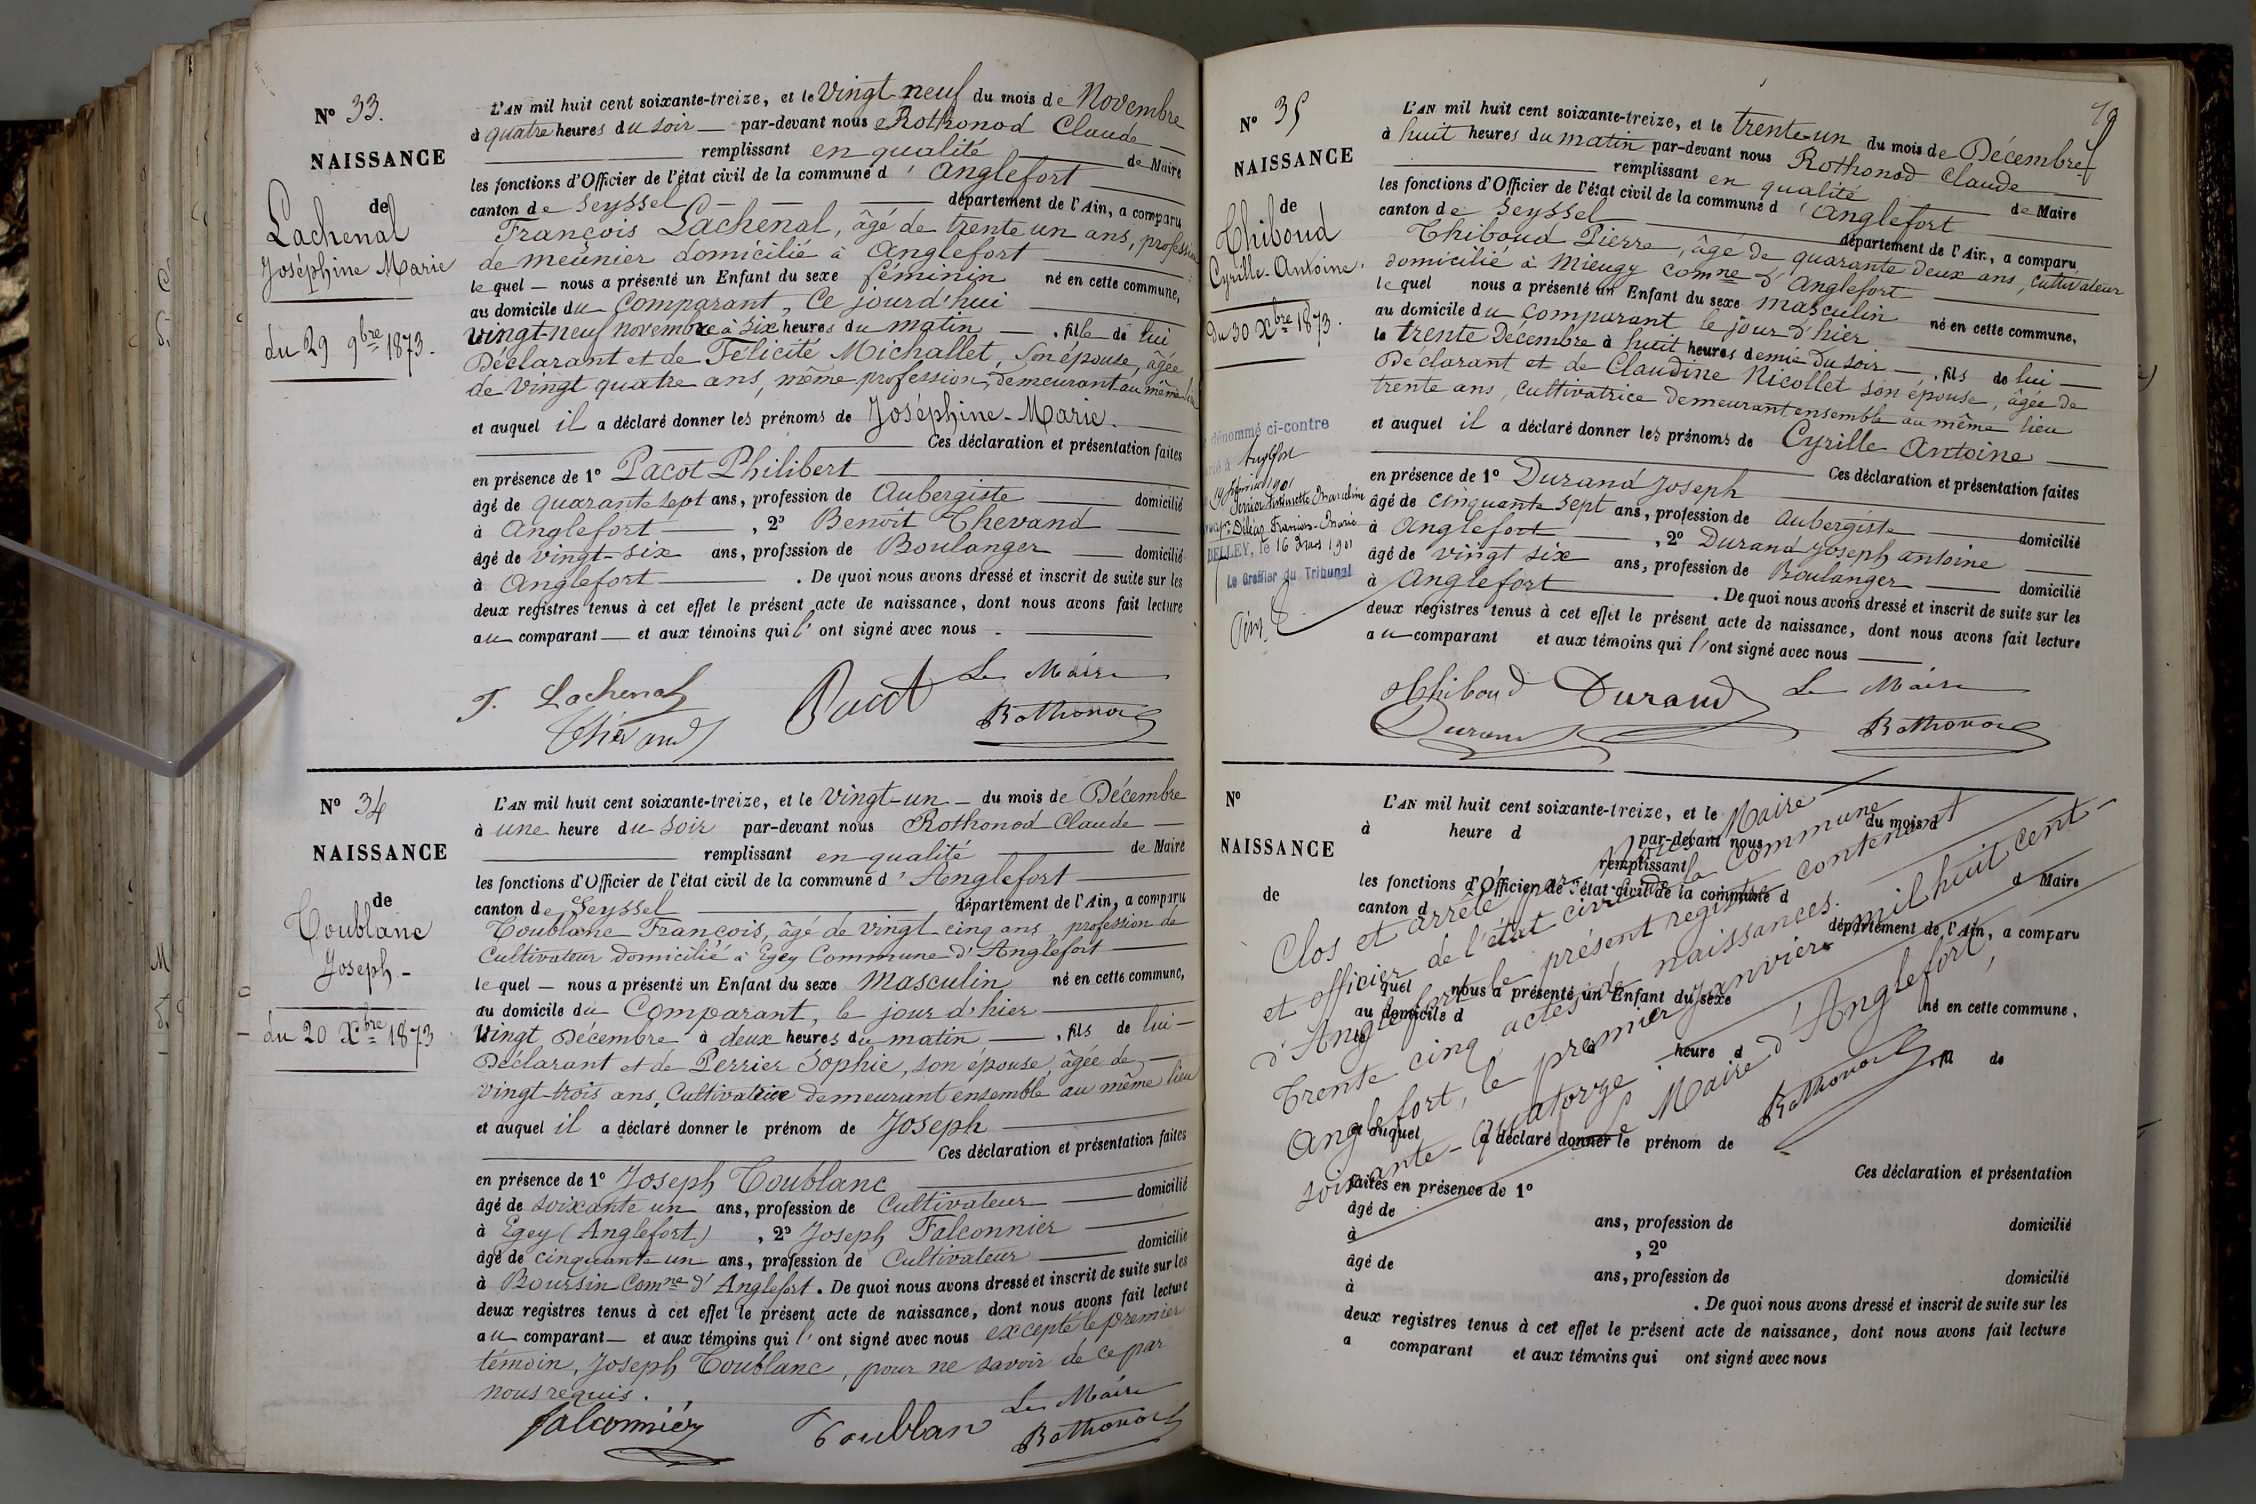 N° 33.
NAISSANCE
de
Lachenal
Joséphine Marie
du 29 9bre 1873.
L'AN mil huit cent soixante-treize, et le Vingt-neuf du mois de Novembre
à quatre heures du soir par-devant nous Rothonod Claude
remplissant en qualité de Maire
les fonctions d'Officier de l'état civil de la commune d'Anglefort
canton de Seyssel département de l'Ain, a comparu
François Lachenal, âgé de trente un ans, profession
de meûnier domicilié à Anglefort
lequel nous a présenté un Enfant du sexe féminin né en cette commune,
au domicile du Comparant, Ce jourd'hui
vingt-neuf novembre à six heures du matin, fille de lui
Déclarant et de Félicité Michallet, Son épouse, âgée
de vingt quatre ans, même profession, demeurant au même lieu
et auquel il a déclaré donner les prénoms de Joséphine-Marie.
Ces déclaration et présentation faites
en présence de 1° Pacot Philibert
âgé de quarante sept ans, profession de Aubergiste domicilié
à Anglefort, 2° Benoît Thevand
âgé de vingt-six ans, profession de Boulanger domicilié
à Anglefort. De quoi nous avons dressé et inscrit de suite sur les
deux registres tenus à cet effet le présent acte de naissance, dont nous avons fait lecture
au comparant et aux témoins qui l'ont signé avec nous.
F. Lachenal Pacot Le Maire
Thévand Rothonod
N° 34
NAISSANCE
de
Toublanc
Joseph
du 20 Xbre 1873
L'AN mil huit cent soixante-treize, et le Vingt-un du mois de Décembre
à une heure du soir par-devant nous Rothonod Claude
remplissant en qualité de Maire
les fonctions d'Officier de l'état civil de la commune d'Anglefort
canton de Seyssel département de l'Ain, a comparu
Toublanc François, âgé de vingt-cinq ans, profession de
Cultivateur domicilié à Egey Commune d'Anglefort
lequel nous a présenté un Enfant du sexe Masculin né en cette commune,
au domicile du Comparant, le jour d'hier
Vingt Décembre à deux heures du matin, fils de lui
Déclarant et de Perrier Sophie, son épouse, âgée de
vingt-trois ans, Cultivatrice demeurant ensemble au même lieu
et auquel il a déclaré donner le prénom de Joseph
Ces déclaration et présentation faites
en présence de 1° Joseph Toublanc
âgé de soixante un ans, profession de Cultivateur domicilié
à Egey (Anglefort), 2° Joseph Falconnier
âgé de cinquante un ans, profession de Cultivateur domicilié
à Boursin Comne d'Anglefort. De quoi nous avons dressé et inscrit de suite sur les
deux registres tenus à cet effet le présent acte de naissance, dont nous avons fait lecture
au comparant et aux témoins qui l'ont signé avec nous excepté le premier
témoin, Joseph Toublanc, pour ne savoir de ce par
nous requis.
Falconnier Toublan Le Maire
Rothonod
79
N° 35
NAISSANCE
de
Thiboud
Cyrille-Antoine.
du 30 Xbre 1873.
dénommé ci-contre
à Anglefort
1901
Antoinette Marceline
BELLEY, le 16 Mars 1901
Le Greffier du Tribunal
L'AN mil huit cent soixante-treize, et le trente-un du mois de Décembre
à huit heures du matin par-devant nous Rothonod Claude
remplissant en qualité de Maire
les fonctions d'Officier de l'état civil de la commune d'Anglefort
canton de Seyssel département de l'Ain, a comparu
Thiboud Pierre, âgé de quarante deux ans, cultivateur
domicilié à Mieugy comne d'Anglefort
lequel nous a présenté un Enfant du sexe masculin né en cette commune,
au domicile du Comparant le jour d'hier
le trente Décembre à huit heures demie du soir, fils de lui
Déclarant et de Claudine Nicollet son épouse, âgée de
trente ans, cultivatrice demeurant ensemble au même lieu
et auquel il a déclaré donner les prénoms de Cyrille Antoine
Ces déclaration et présentation faites
en présence de 1° Durand Joseph
âgé de cinquante sept ans, profession de Aubergiste domicilié
à Anglefort, 2° Durand Joseph antoine
âgé de vingt six ans, profession de Boulanger domicilié
à Anglefort. De quoi nous avons dressé et inscrit de suite sur les
deux registres tenus à cet effet le présent acte de naissance, dont nous avons fait lecture
au comparant et aux témoins qui l'ont signé avec nous
Thiboud Durand Le Maire
Durand Rothonod
N°
NAISSANCE
de
L'AN mil huit cent soixante-treize, et le du mois d
à heure d par-devant nous
remplissant d Maire
les fonctions d'Officier de l'état civil de la commune d
canton d département de l'Ain, a comparu
quel nous a présenté un Enfant du sexe né en cette commune,
au domicile d
le à heure d , fil de
et auquel a déclaré donner le prénom de
Ces déclaration et présentation
faites en présence de 1°
âgé de ans, profession de domicilié
à , 2°
âgé de ans, profession de domicilié
à . De quoi nous avons dressé et inscrit de suite sur les
deux registres tenus à cet effet le présent acte de naissance, dont nous avons fait lecture
a comparant et aux témoins qui ont signé avec nous
Clos et arrêté par Nous Maire
et officier de l'état civil de la Commune
d'Anglefort le présent registre contenant
Trente cinq actes de naissances.
Anglefort, le premier Janvier mil huit cent
soixante-Quatorze.
Le Maire d'Anglefort,
Rothonod